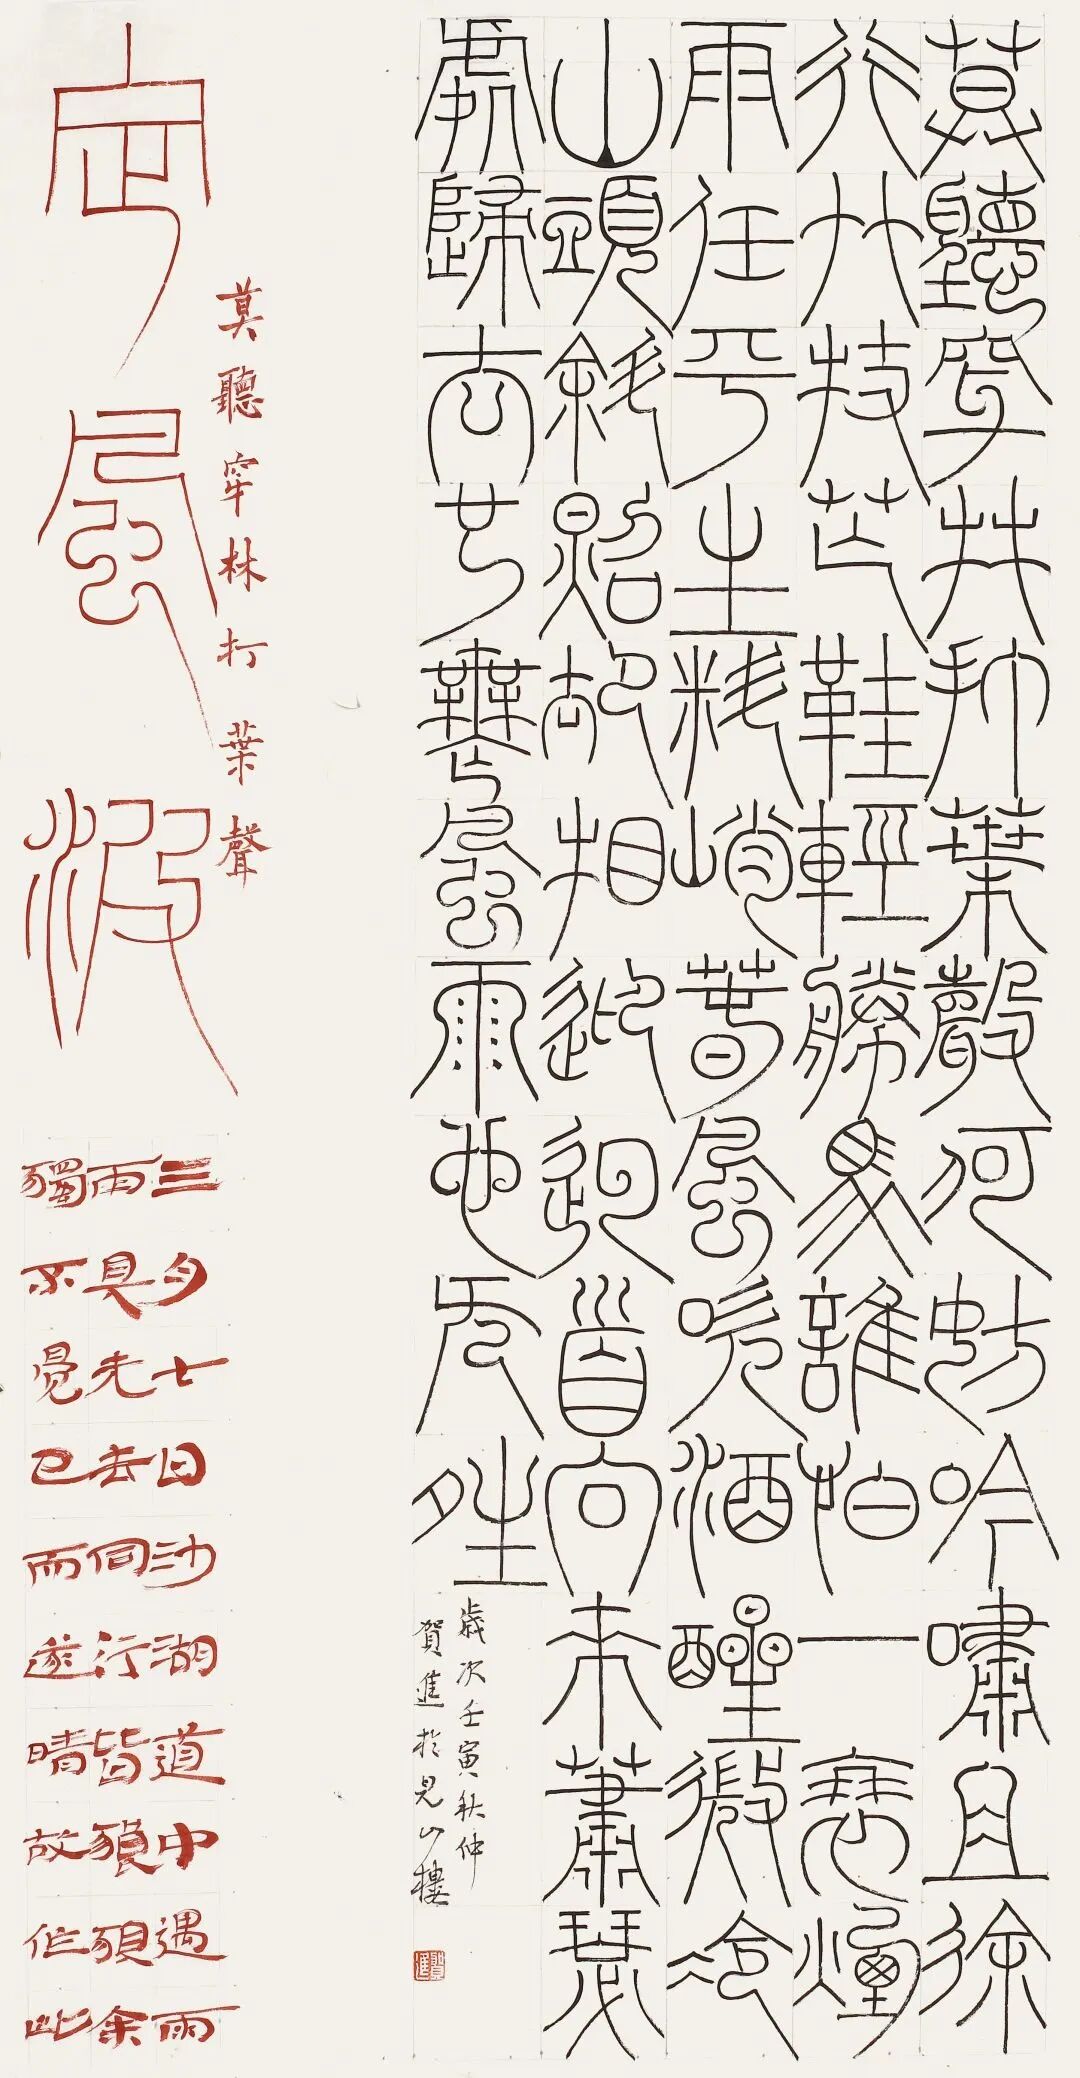 莫聽穿林打葉聲何妨吟嘯且徐
行竹杖芒鞋輕勝馬誰怕一蓑煙
雨任平生料峭春風吹酒醒微冷
山頭斜照却相迎迴首向來蕭瑟
處歸去也無風雨也无晴
歲次壬寅秋仲
賀進於見山樓
賀進
莫聽穿林打葉聲
定風波
三月七日沙湖道中遇雨
雨具先去同行皆狼狽余
獨不覺已而遂晴故作此